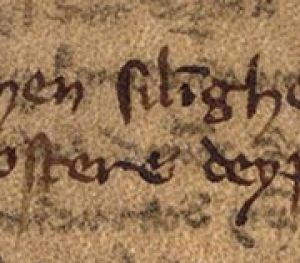 hen silīghe
ostere deyp